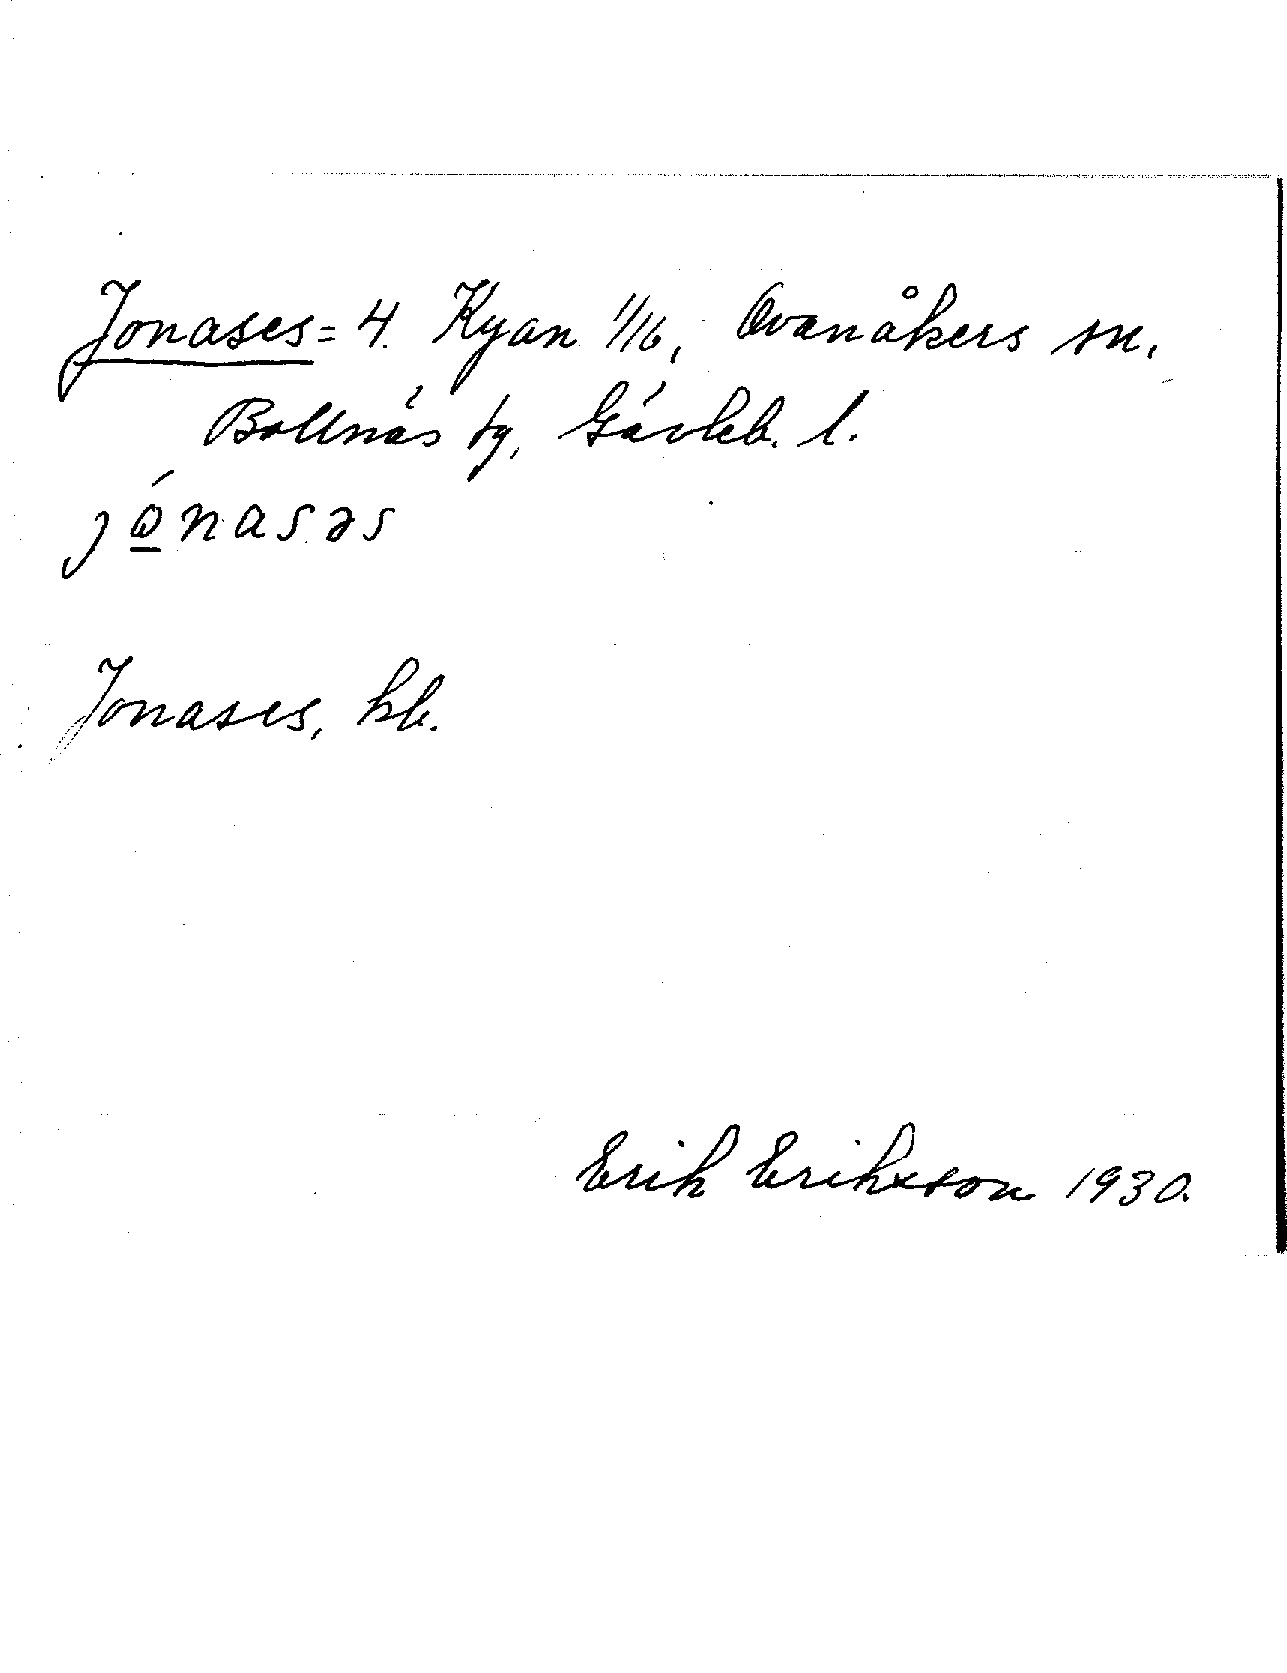 Jonases = 4. Kyan 1/16, Ovanåkers sn.
Bollnäs tg, Gävleb. l.
jó̲nasəs
Jonases, hb.
Erik Erikxson 1930.